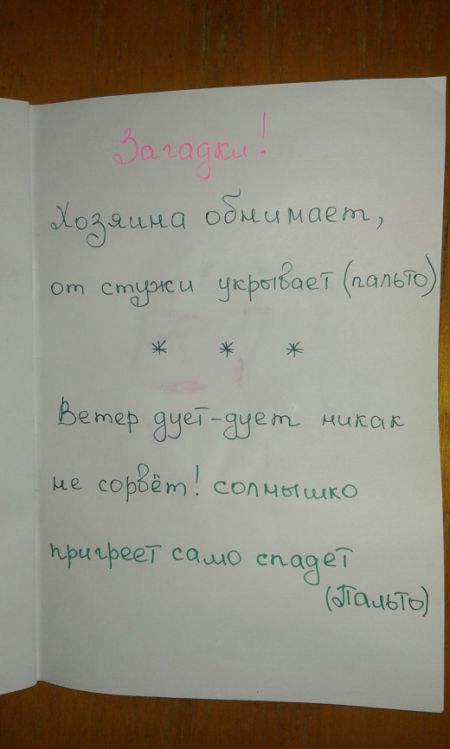 Загадки!
Хозяина обнимает,
от стужи укрывает (пальто)
* * *
Ветер дует-дует никак
не сорвёт! солнышко
пригреет само спадет
(Пальто)